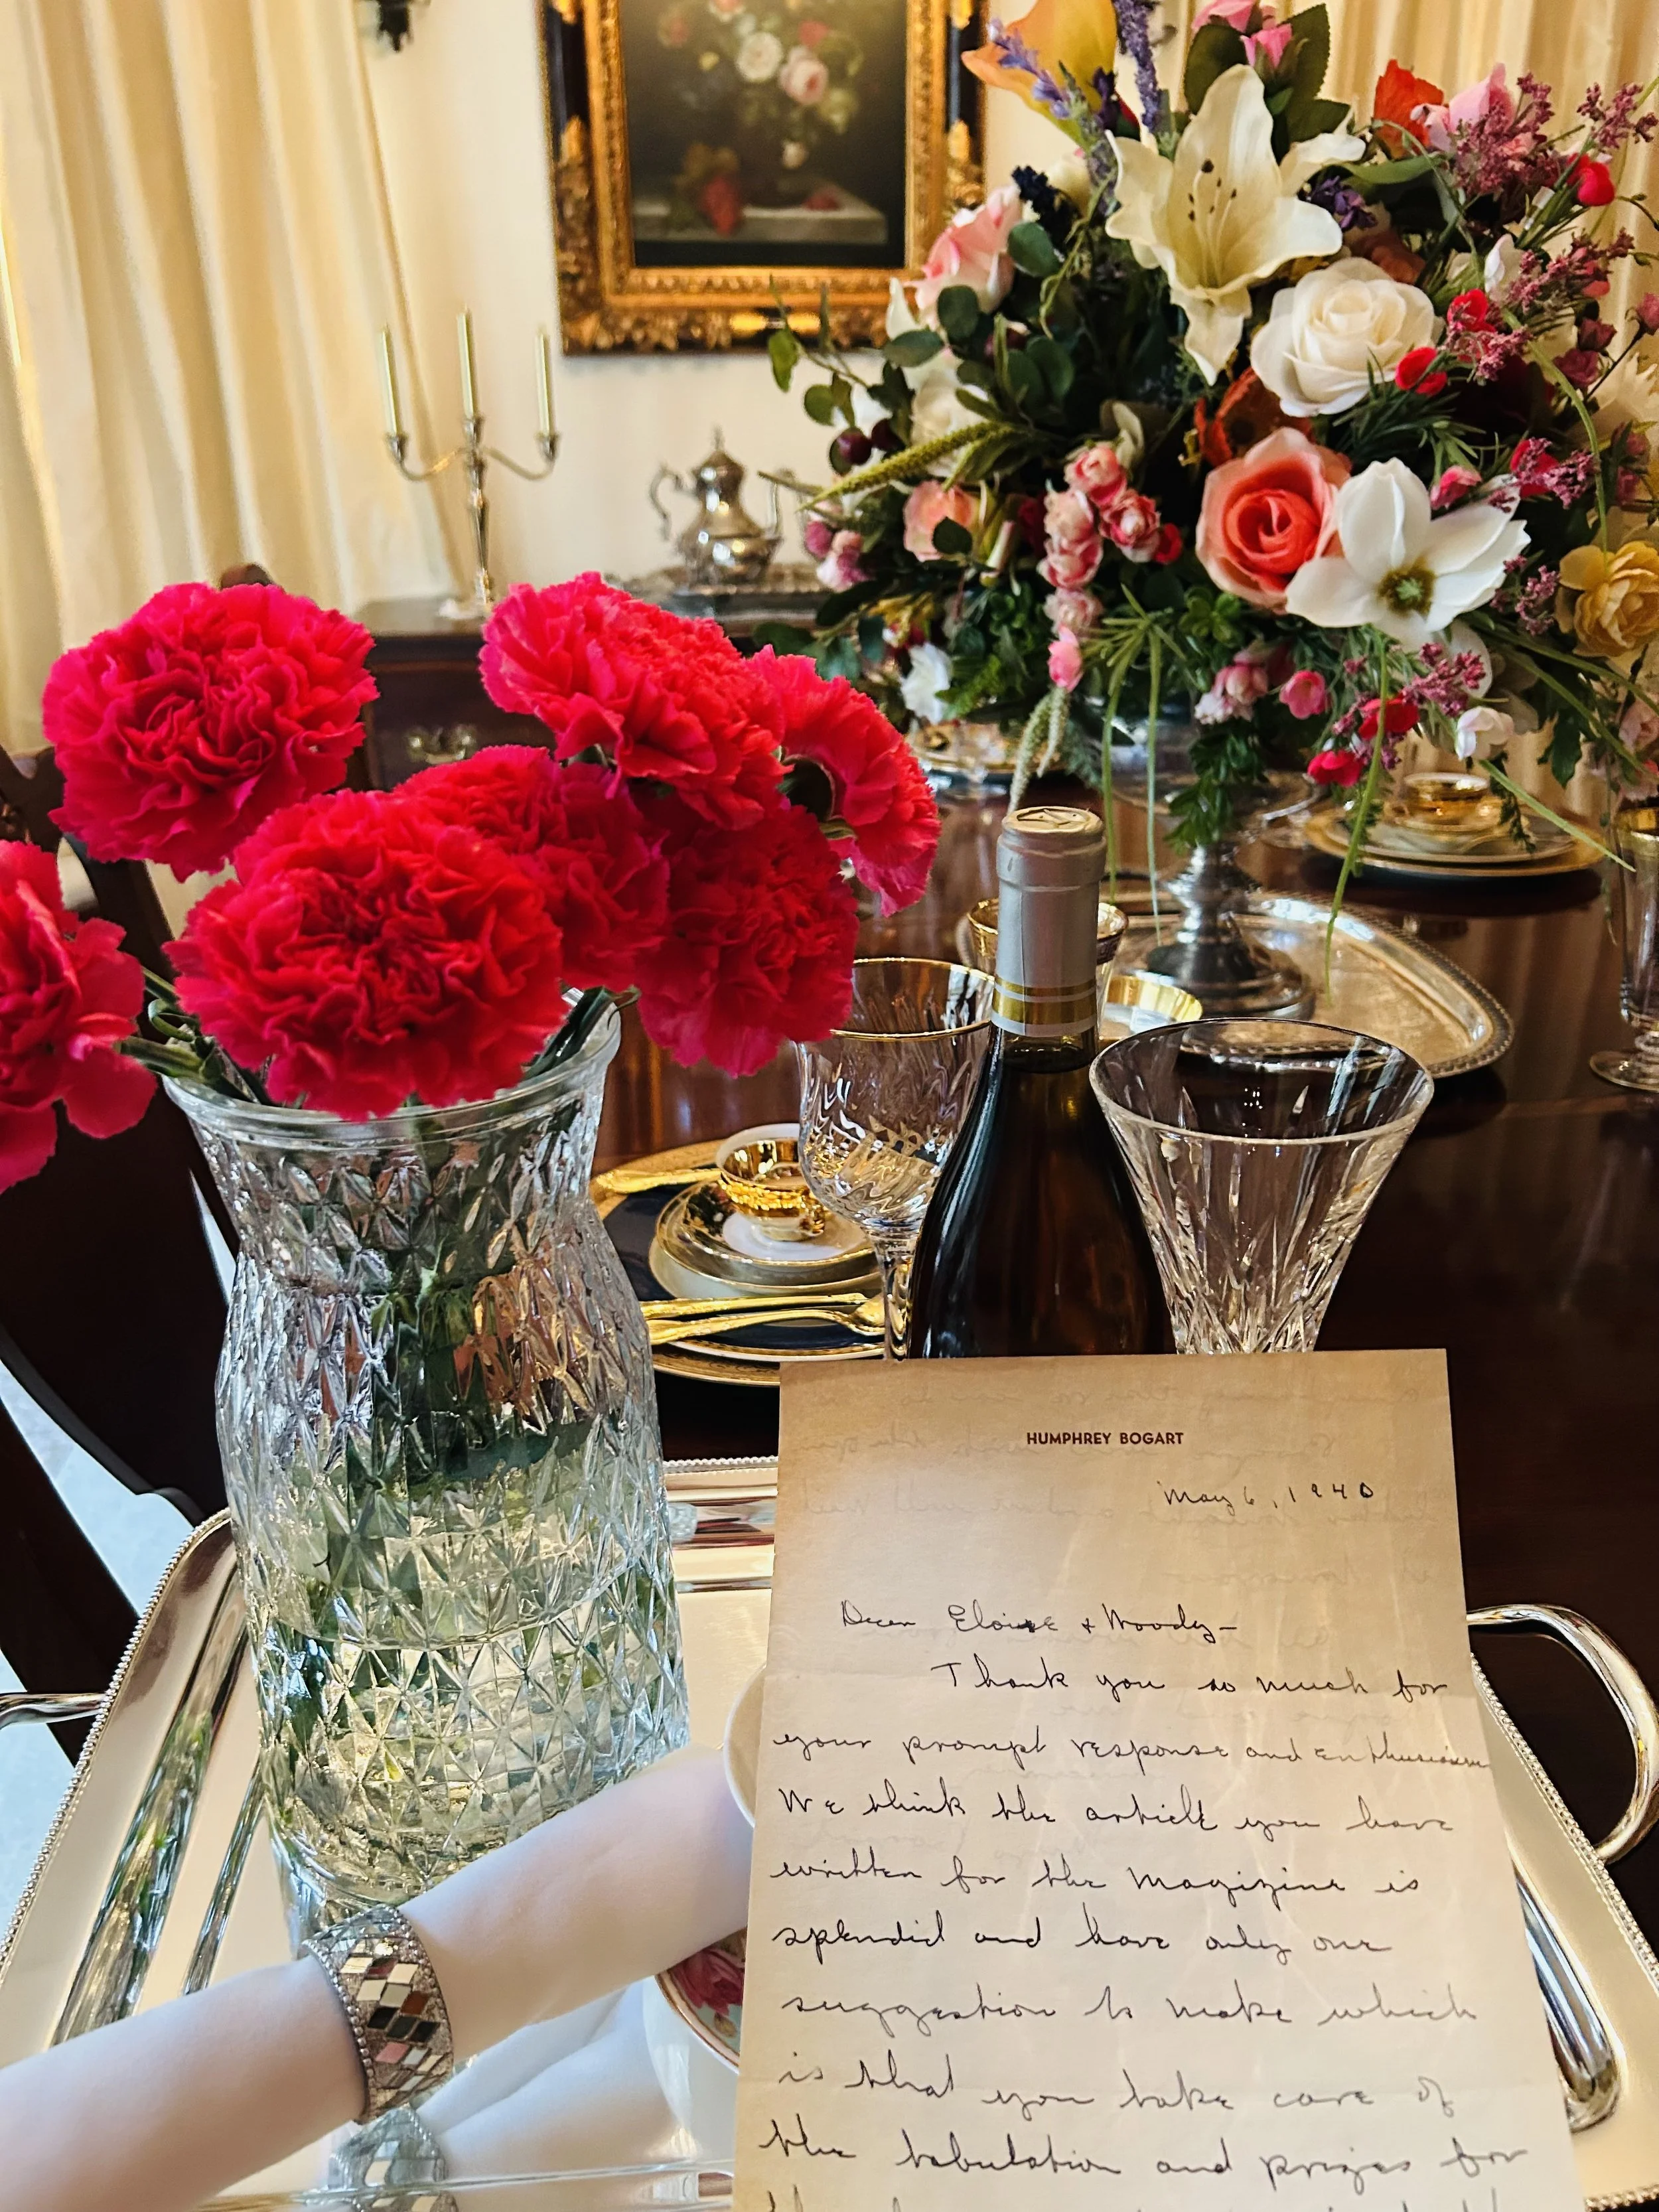 HUMPHREY BOGART
May 6, 1940
Dear Eloise + Woody-
Thank you so much for
your prompt response and enthusiasm
We think the article you have
written for the Magizine is
splendid and have only one
suggestion to make which
is that you take care of
the tabulation and prizes for